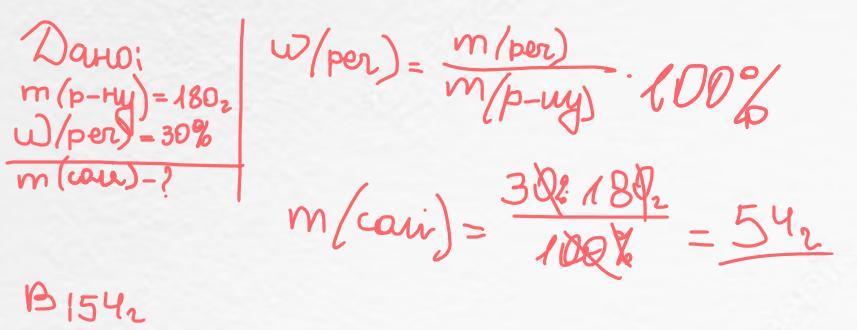 Дано:
m(р-ну)=180г
W(реч)=30%
m(солі)-?
W(реч) = m(реч) / m(р-ну) · 100%
m(солі) = 30% · 180г / 100% = 54г
В: 54г